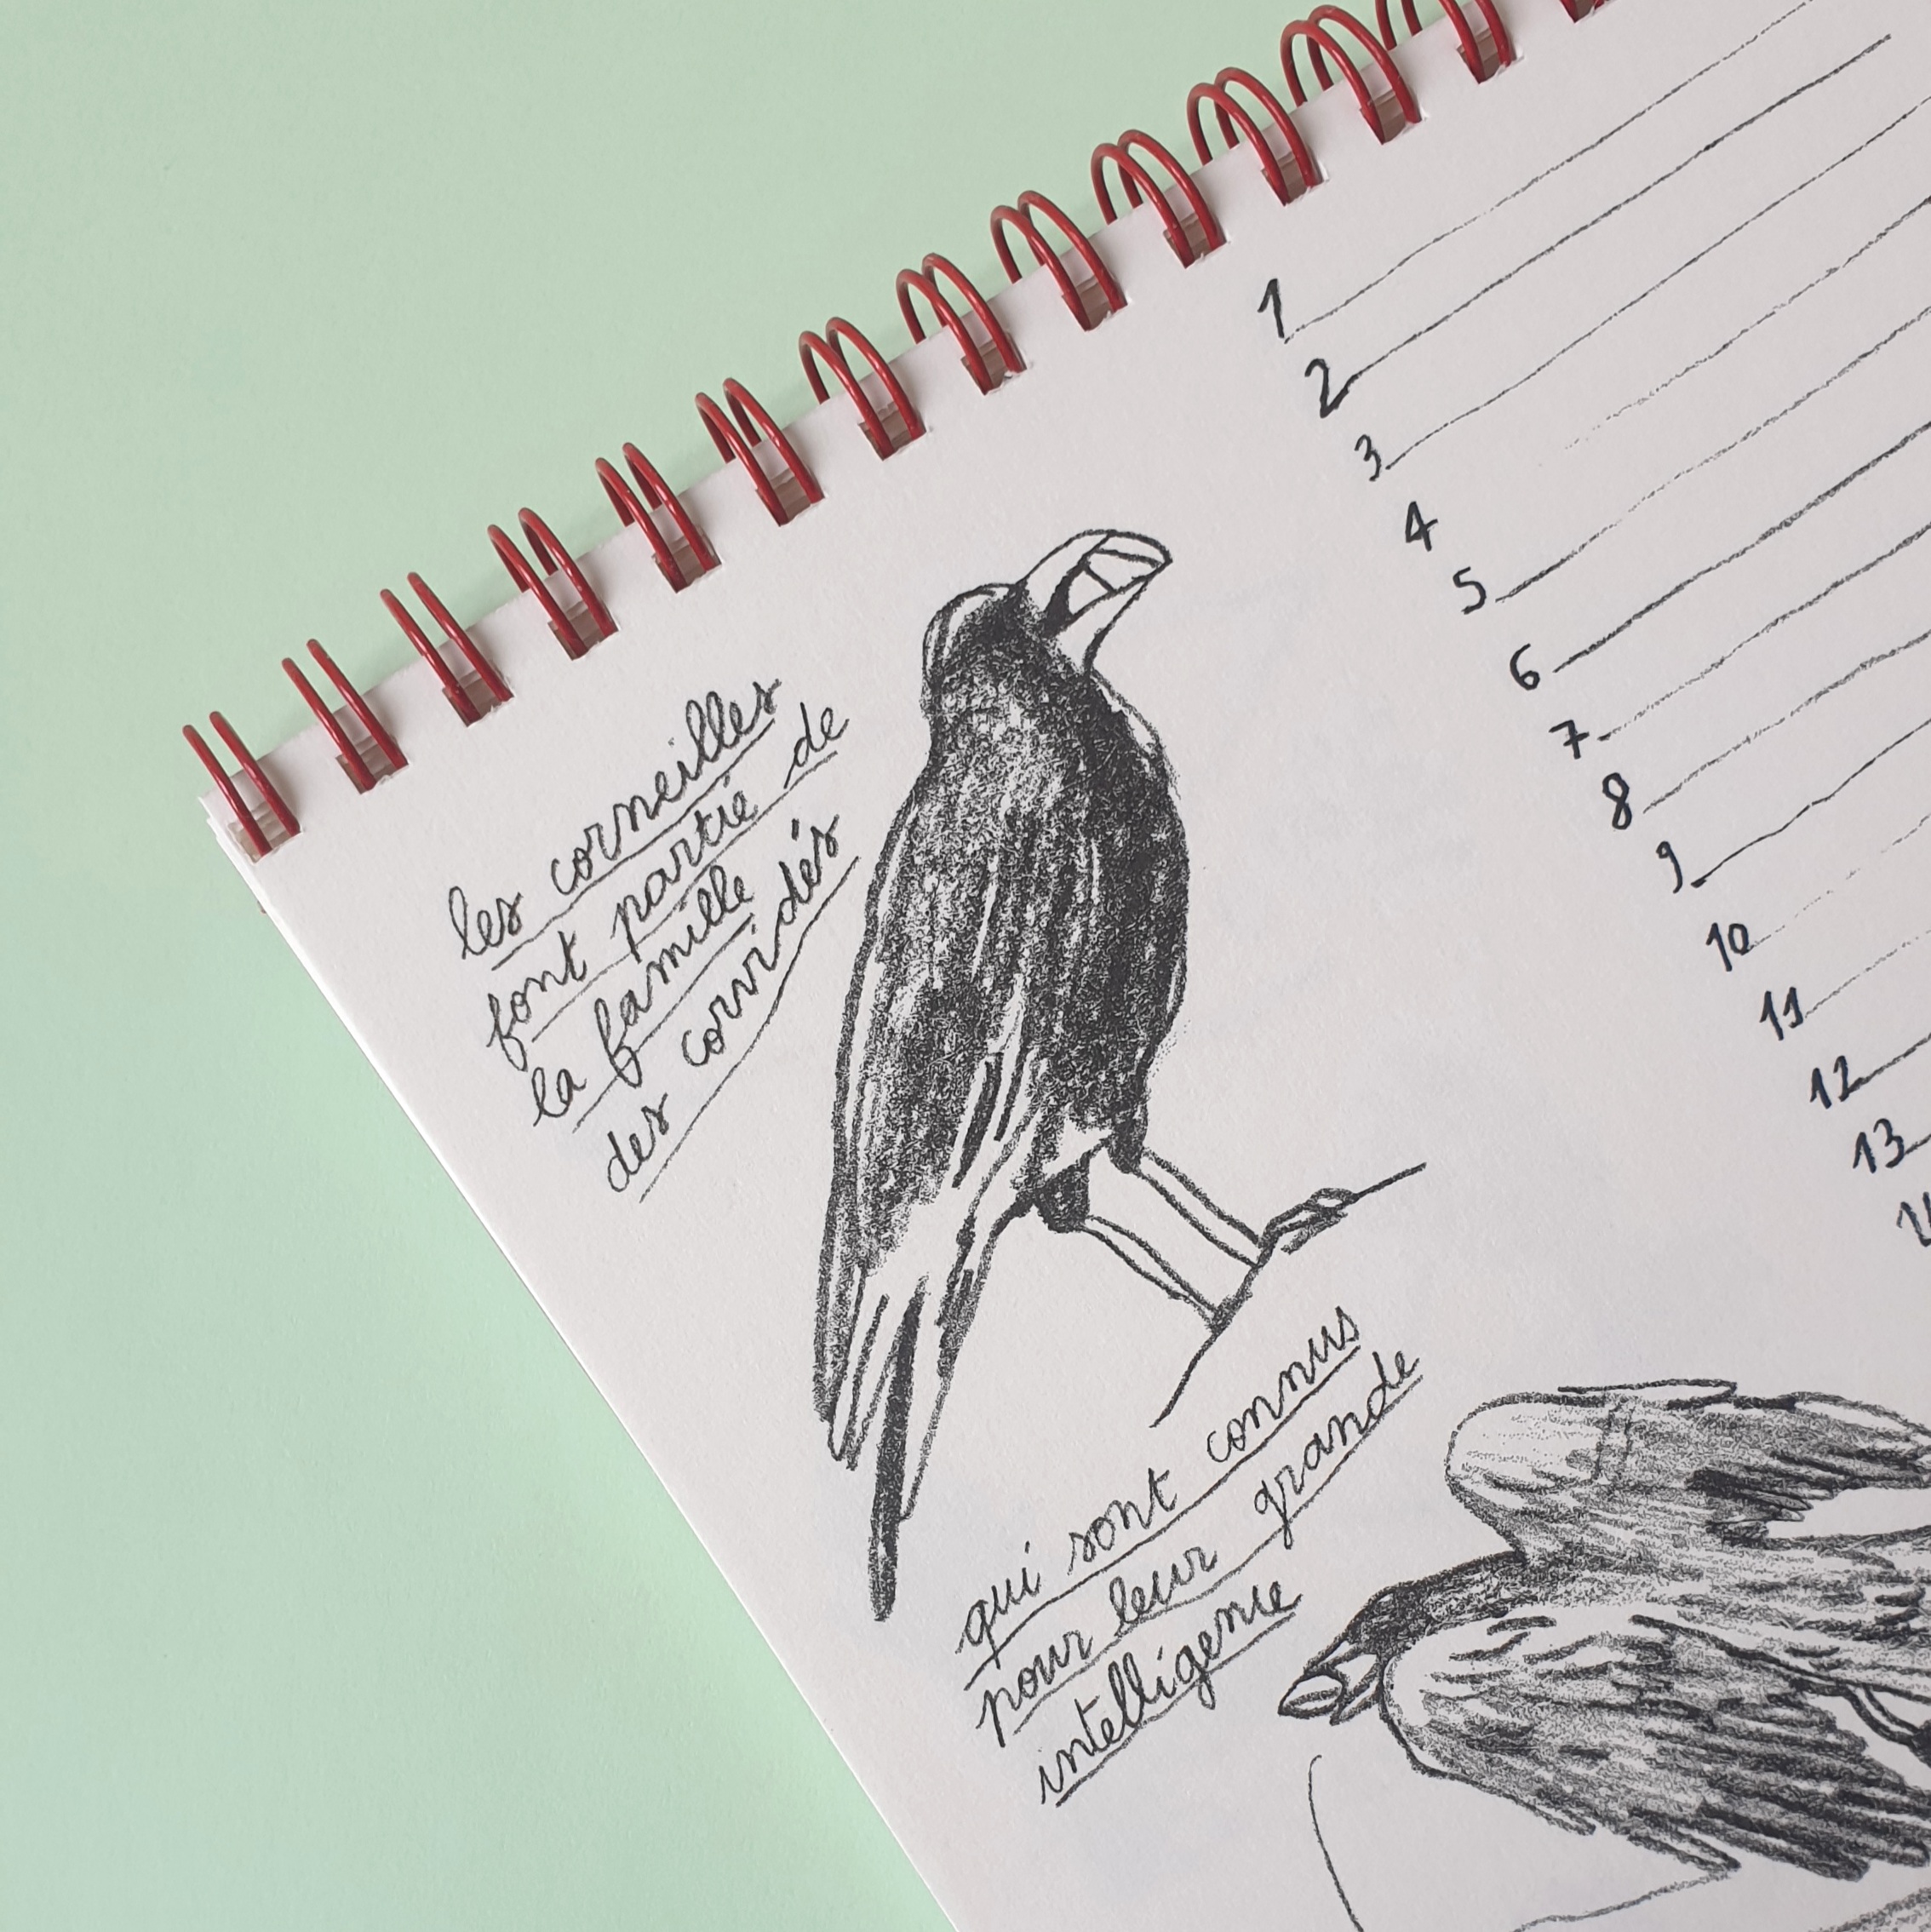 les corneilles
font partie de
la famille
des corvidés
qui sont connus
pour leur grande
intelligence
1
2
3
4
5
6
7
8
9
10
11
12
13